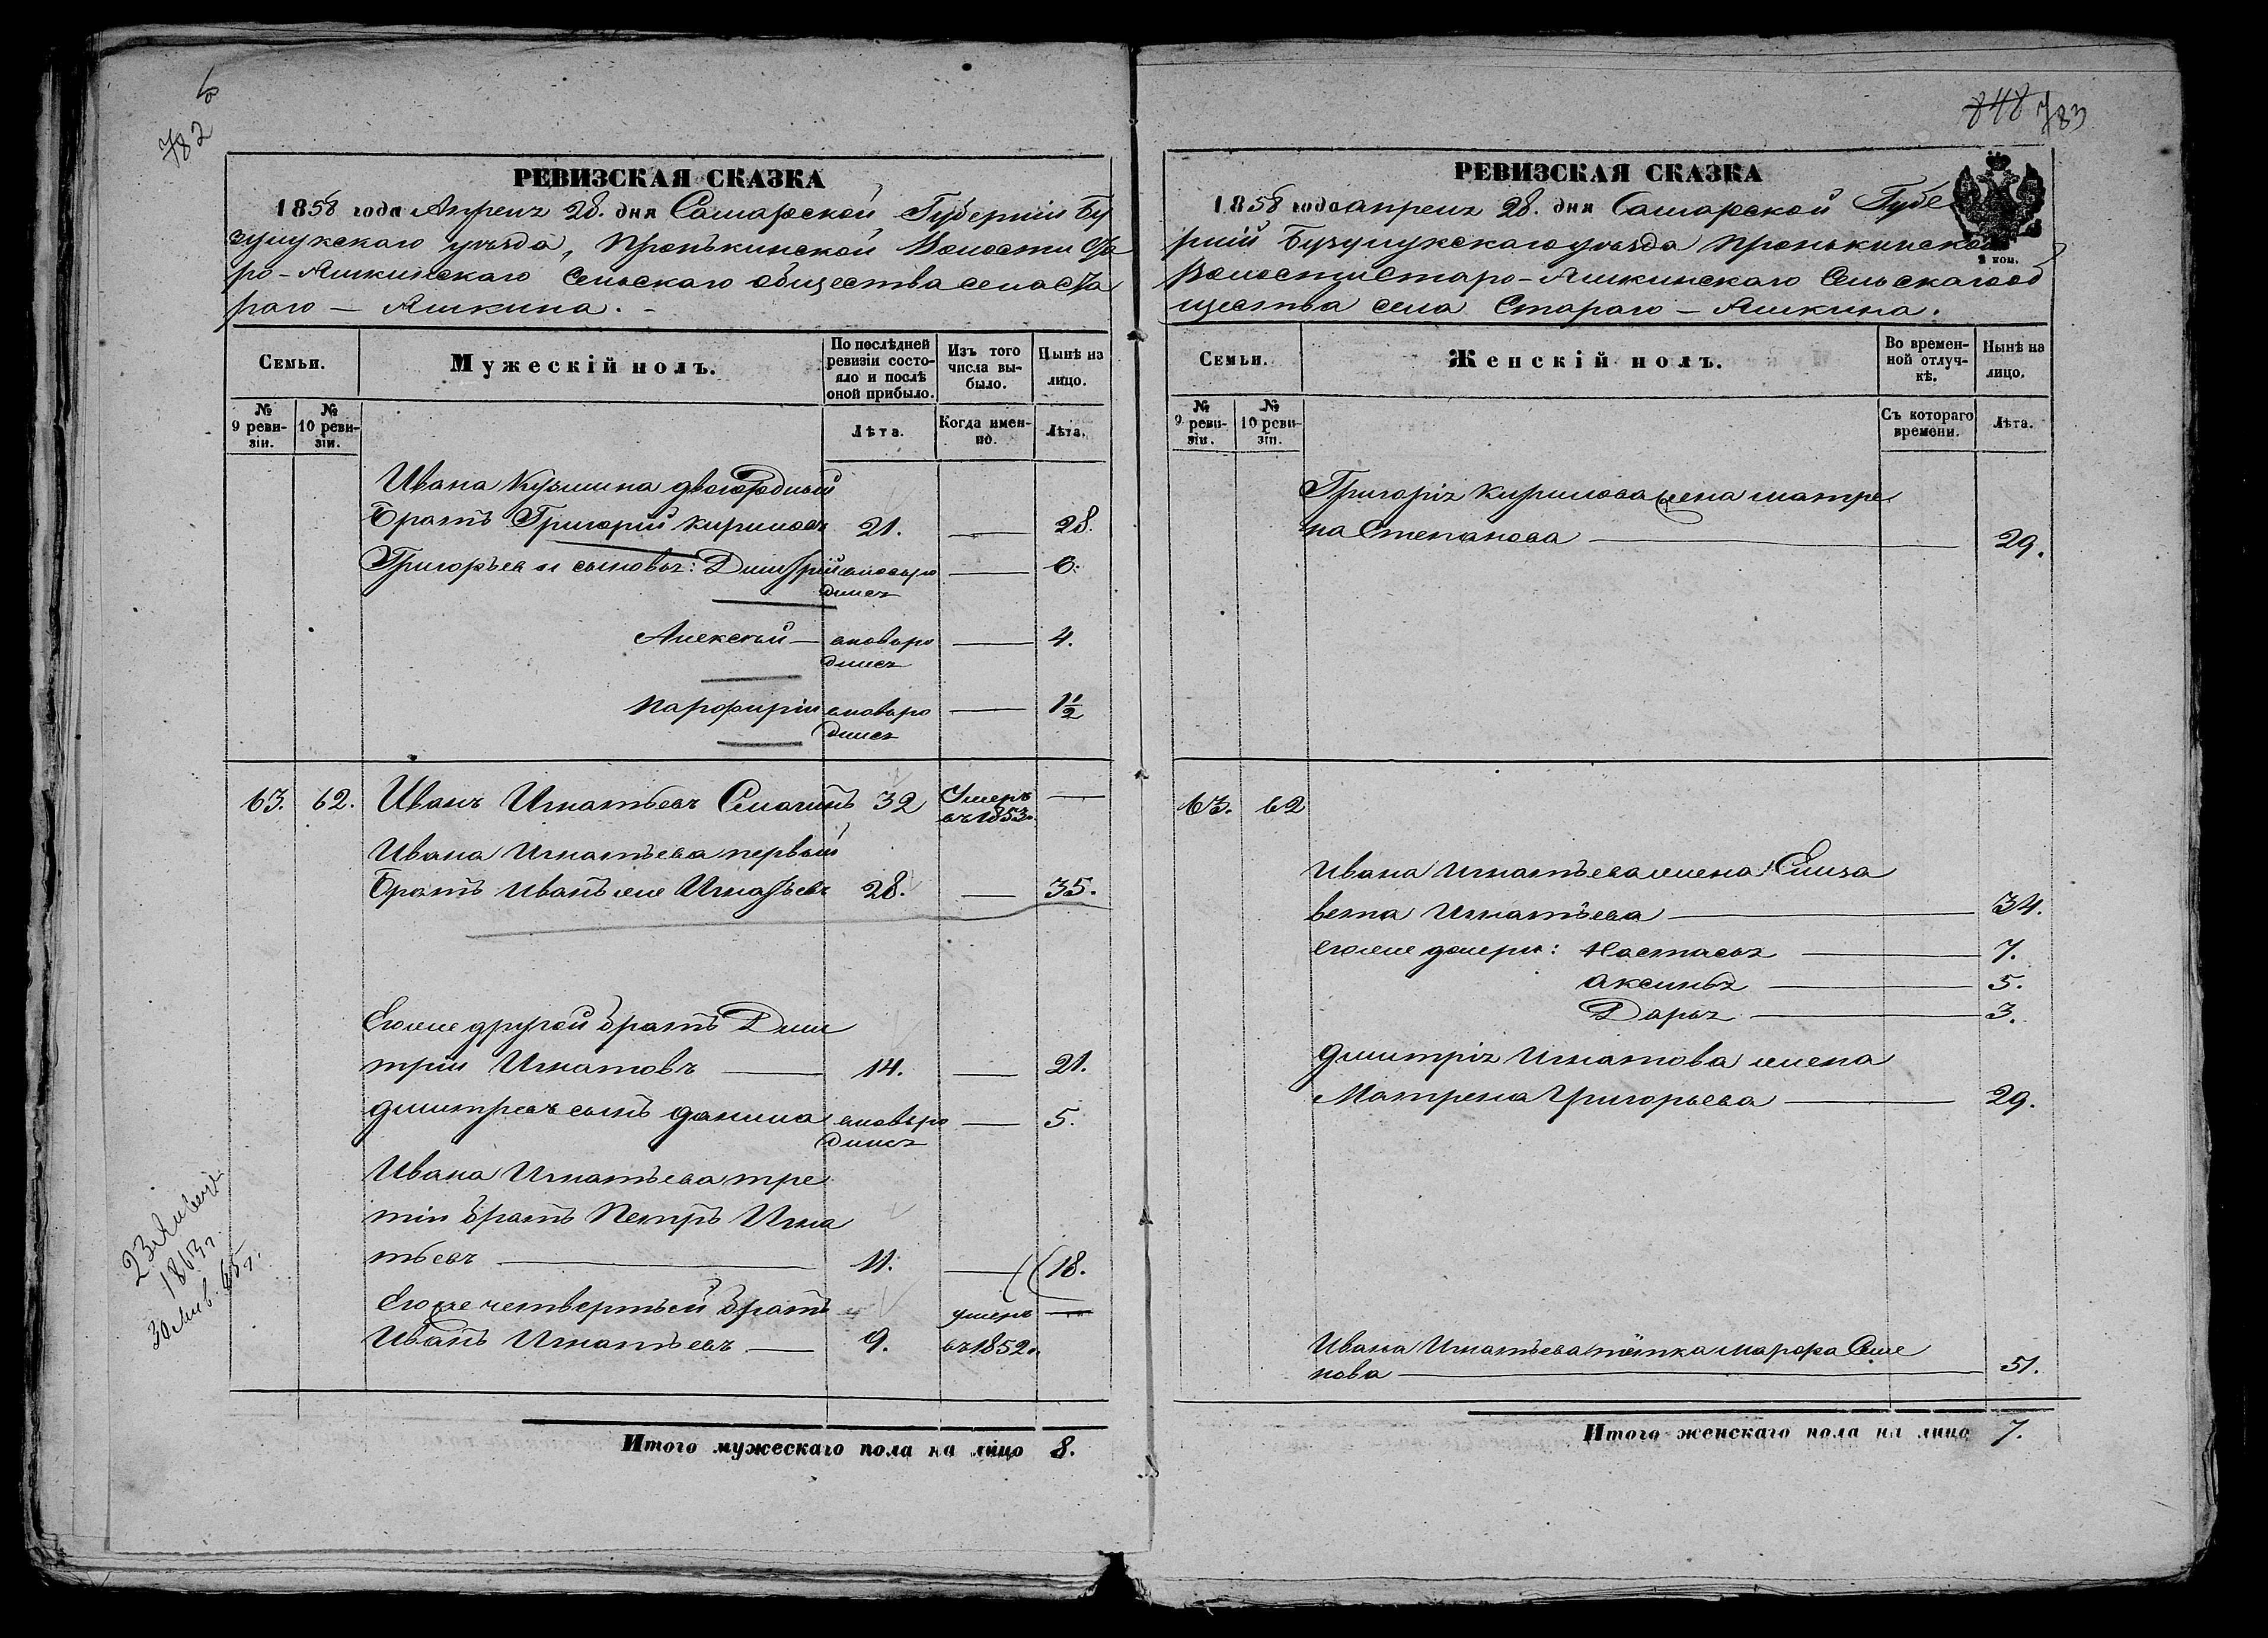 782
РЕВИЗСКАЯ СКАЗКА
1858 года Апреля 28. дня Самарской Губернии Бу
зулукскаго уѣзда, Пронькинской Волости Ста
ро-Ашкинскаго Сельскаго общества села Ста
раго — Ашкина.
Семьи.
Мужескій полъ.
По послѣдней
ревизіи состо-
яло и послѣ
оной прибыло.
Изъ того
числа вы-
было.
Нынѣ на
лицо.
№
9 реви-
зіи.
№
10 реви-
зіи.
Лѣта.
Когда имен-
но.
Лѣта.
Ивана Кузмина двоюродный
братъ Григорий Кириловъ 21. — 28.
Григорьева сыновья: Димитрій вновьро — 6.
дился
Алексѣй — вновьро — 4.
дился
Парфирій вновьро — 1½
дился
63. 62. Иванъ Игнатьевъ 32 Умеръ —
въ 1853.
Ивана Игнатьева первый
братъ Иванъ же Игнатьевъ 28. — 35.
Егоже другой братъ Дми
трій Игнатовъ — 14. — 21.
Димитрія сынъ Данила вновьро — 5.
дился
Ивана Игнатьева тре
тій братъ Петръ Игна
тьевъ — 11. — 18.
Егоже четвертый братъ умеръ —
Иванъ Игнатьевъ — 9. въ 1852.
23 Января
1863 г.
30 Янв. 65 г.
Итого мужескаго пола на лицо 8.
848 783
РЕВИЗСКАЯ СКАЗКА
1858 года апреля 28. дня Самарской Губе
рніи Бузулукскаго уѣзда Пронькинской
Волости Старо-Ашкинскаго Сельскаго об
щества села Стараго — Ашкина.
Семьи.
Женскій полъ.
Во времен-
ной отлуч-
кѣ.
Нынѣ на
лицо.
№
9 реви-
зіи.
№
10 реви-
зіи.
Съ котораго
времени.
Лѣта.
Григорія Кирилова жена Матре
на Степанова — 29.
63. 62
Ивана Игнатьева жена Елиза
вета Игнатьева — 34.
егоже дочери: Настасья — 7.
Аксинья — 5.
Дарья — 3.
Димитрія Игнатова жена
Матрена Григорьева — 29.
Ивана Игнатьева тётка Марфа Семе
нова — 51.
Итого женскаго пола на лицо 7.